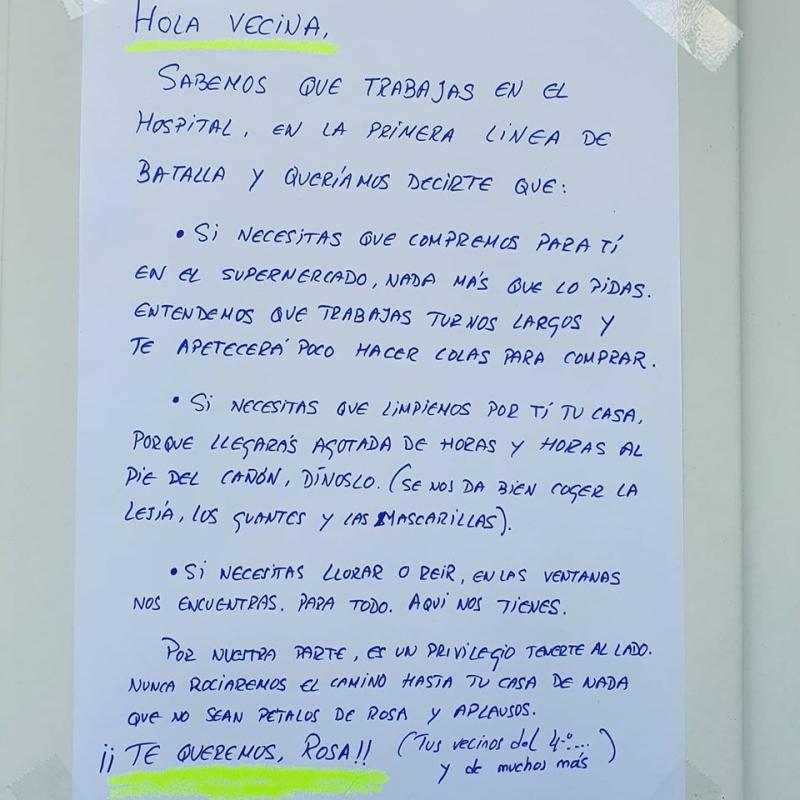 HOLA VECINA,
SABEMOS QUE TRABAJAS EN EL
HOSPITAL, EN LA PRIMERA LINEA DE
BATALLA Y QUERÍAMOS DECIRTE QUE:
• Si NECESITAS QUE COMPREMOS PARA TÍ
EN EL SUPERMERCADO, NADA MÁS QUE LO PIDAS.
ENTENDEMOS QUE TRABAJAS TURNOS LARGOS Y
TE APETECERÁ POCO HACER COLAS PARA COMPRAR.
• Si NECESITAS QUE LIMPIEMOS POR TÍ TU CASA,
PORQUE LLEGARÁS AGOTADA DE HORAS Y HORAS AL
PIE DEL CAÑÓN, DÍNOSLO. (SE NOS DA BIEN COGER LA
LEJÍA, LOS GUANTES Y LAS MASCARILLAS).
• Si NECESITAS LLORAR O REIR, EN LAS VENTANAS
NOS ENCUENTRAS. PARA TODO. AQUÍ NOS TIENES.
POR NUESTRA PARTE, ES UN PRIVILEGIO TENERTE AL LADO.
NUNCA ROCIAREMOS EL CAMINO HASTA TU CASA DE NADA
QUE NO SEAN PETALOS DE ROSA Y APLAUSOS.
¡¡ TE QUEREMOS, ROSA!! (Tus vecinos del 4º...
y de muchos más)